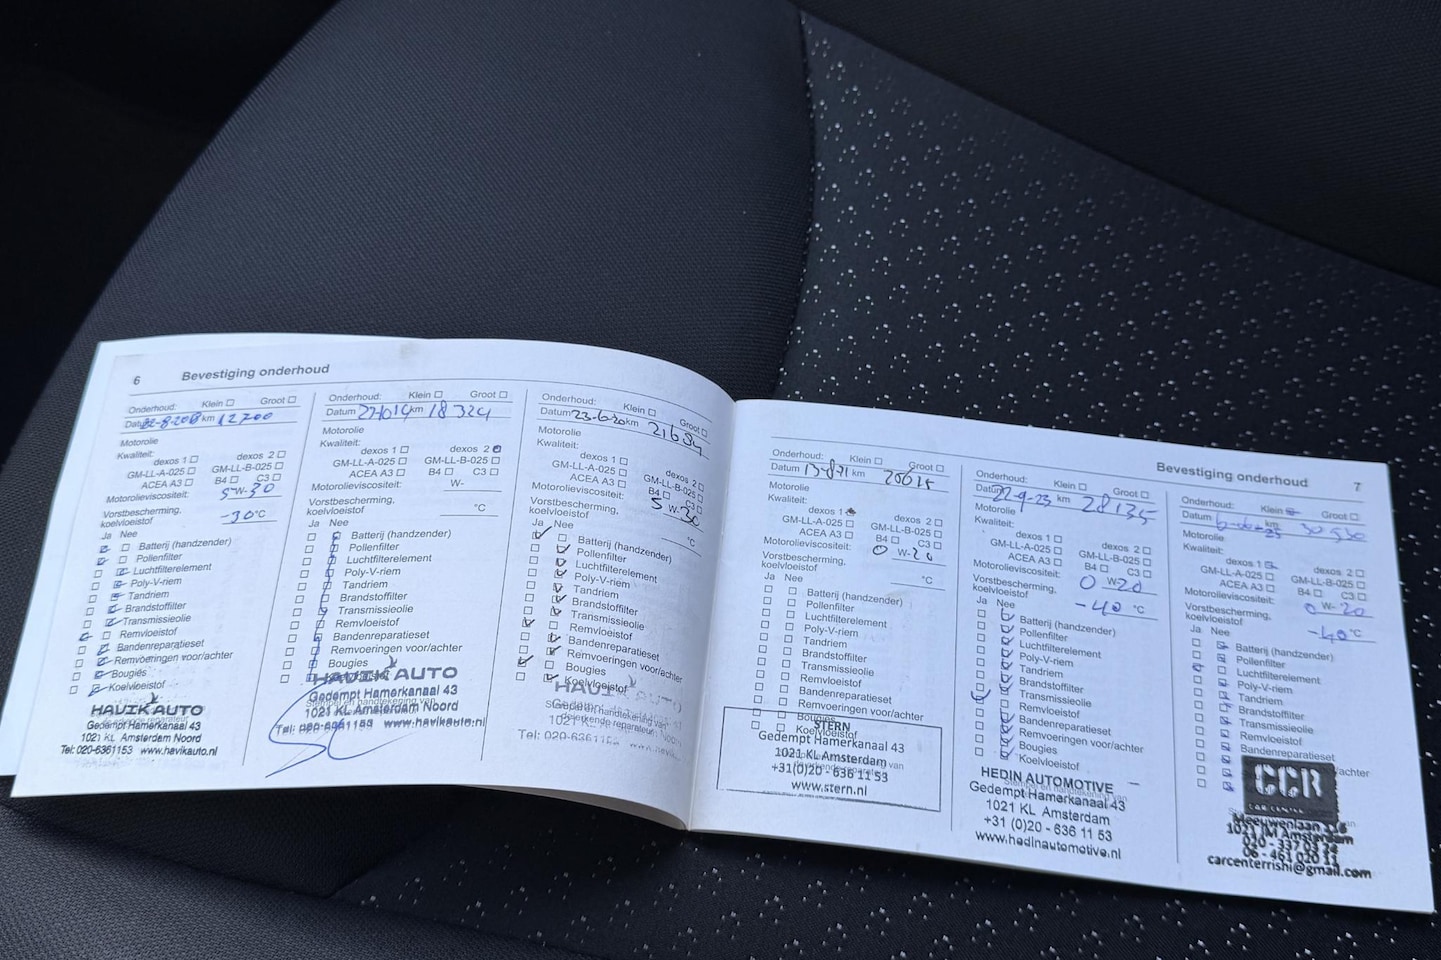 6 Bevestiging onderhoud
Onderhoud: Klein Groot
Datum km 12700
Motorolie
Kwaliteit:
dexos 1 dexos 2
GM-LL-A-025 GM-LL-B-025
ACEA A3 B4 C3
Motorolieviscositeit: 5 W-30
Vorstbescherming,
koelvloeistof -30°C
Ja Nee
Batterij (handzender)
Pollenfilter
Luchtfilterelement
Poly-V-riem
Tandriem
Brandstoffilter
Transmissieolie
Remvloeistof
Bandenreparatieset
Remvoeringen voor/achter
Bougies
Koelvloeistof
HAVIK AUTO
Gedempt Hamerkanaal 43
1021 KL Amsterdam Noord
Tel: 020-6361153 www.havikauto.nl
Onderhoud: Klein Groot
Datum km 18324
Motorolie
Kwaliteit:
dexos 1 dexos 2
GM-LL-A-025 GM-LL-B-025
ACEA A3 B4 C3
Motorolieviscositeit: W-
Vorstbescherming,
koelvloeistof °C
Ja Nee
Batterij (handzender)
Pollenfilter
Luchtfilterelement
Poly-V-riem
Tandriem
Brandstoffilter
Transmissieolie
Remvloeistof
Bandenreparatieset
Remvoeringen voor/achter
Bougies
HAVIK AUTO
Gedempt Hamerkanaal 43
1021 KL Amsterdam Noord
www.havikauto.nl
Onderhoud: Klein Groot
Datum 23-6-20 km 21684
Motorolie
Kwaliteit:
dexos 1 dexos 2
GM-LL-A-025 GM-LL-B-025
ACEA A3 B4 C3
Motorolieviscositeit: 5 W-30
Vorstbescherming,
koelvloeistof °C
Ja Nee
Batterij (handzender)
Pollenfilter
Luchtfilterelement
Poly-V-riem
Tandriem
Brandstoffilter
Transmissieolie
Remvloeistof
Bandenreparatieset
Remvoeringen voor/achter
Bougies
Koelvloeistof
Bevestiging onderhoud 7
Onderhoud: Klein Groot
Datum 13-8-21 km
Motorolie
Kwaliteit:
dexos 1 dexos 2
GM-LL-A-025 GM-LL-B-025
ACEA A3 B4 C3
Motorolieviscositeit: 0 W-20
Vorstbescherming,
koelvloeistof °C
Ja Nee
Batterij (handzender)
Pollenfilter
Luchtfilterelement
Poly-V-riem
Tandriem
Brandstoffilter
Transmissieolie
Remvloeistof
Bandenreparatieset
Remvoeringen voor/achter
Bougies
Koelvloeistof
STERN
Gedempt Hamerkanaal 43
1021 KL Amsterdam
+31(0)20 - 636 11 53
www.stern.nl
Onderhoud: Klein Groot
Datum 22-9-23 km 28135
Motorolie
Kwaliteit:
dexos 1 dexos 2
GM-LL-A-025 GM-LL-B-025
ACEA A3 B4 C3
Motorolieviscositeit: 0 W-20
Vorstbescherming,
koelvloeistof -40 °C
Ja Nee
Batterij (handzender)
Pollenfilter
Luchtfilterelement
Poly-V-riem
Tandriem
Brandstoffilter
Transmissieolie
Remvloeistof
Bandenreparatieset
Remvoeringen voor/achter
Bougies
Koelvloeistof
HEDIN AUTOMOTIVE
Gedempt Hamerkanaal 43
1021 KL Amsterdam
+31 (0)20 - 636 11 53
www.hedinautomotive.nl
Onderhoud: Klein Groot
Datum km
Motorolie
Kwaliteit:
dexos 1 dexos 2
GM-LL-A-025 GM-LL-B-025
ACEA A3 B4 C3
Motorolieviscositeit: 0 W-20
Vorstbescherming,
koelvloeistof -40°C
Ja Nee
Batterij (handzender)
Pollenfilter
Luchtfilterelement
Poly-V-riem
Tandriem
Brandstoffilter
Transmissieolie
Remvloeistof
Bandenreparatieset
CCR
CAR CENTER
Meeuwenlaan
1021 JM Amsterdam
020 - 337 03 24
06 - 461 020 11
carcenterrishi@gmail.com